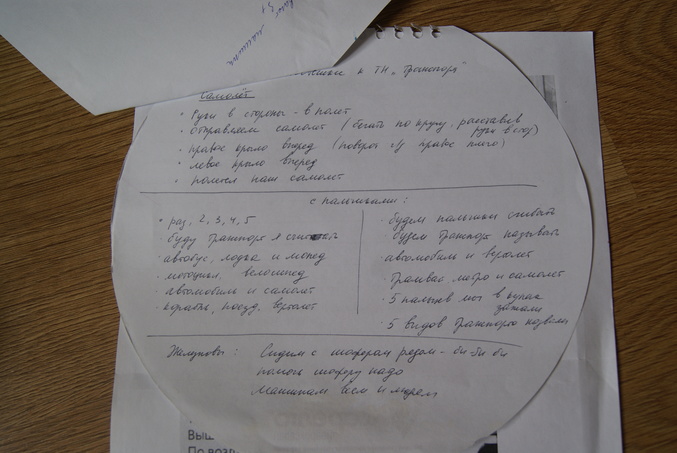 к ТН „Транспорт"
Самолёт
• Руки в стороны - в полет
• Отправляем самолет (бегать по кругу, расставив руки в стор)
• правое крыло вперед (поворот ч/з правое плечо)
• левое крыло вперед
• полетел наш самолет
с пальчиками:
• раз, 2, 3, 4, 5
• буду транспорт я считать
• автобус, лодка и мопед
• мотоцикл, велосипед
• автомобиль и самолет
• корабль, поезд, вертолет
• будем пальчики сгибать
• будем транспорт называть
• автомобиль и вертолет
• трамвай, метро и самолет
• 5 пальцев мы в кулак зажали
• 5 видов транспорта назвали
Сидим с шофером рядом - би-би-би
помочь шоферу надо
Машинам всем и людям
машины
ВЫШ
По возд